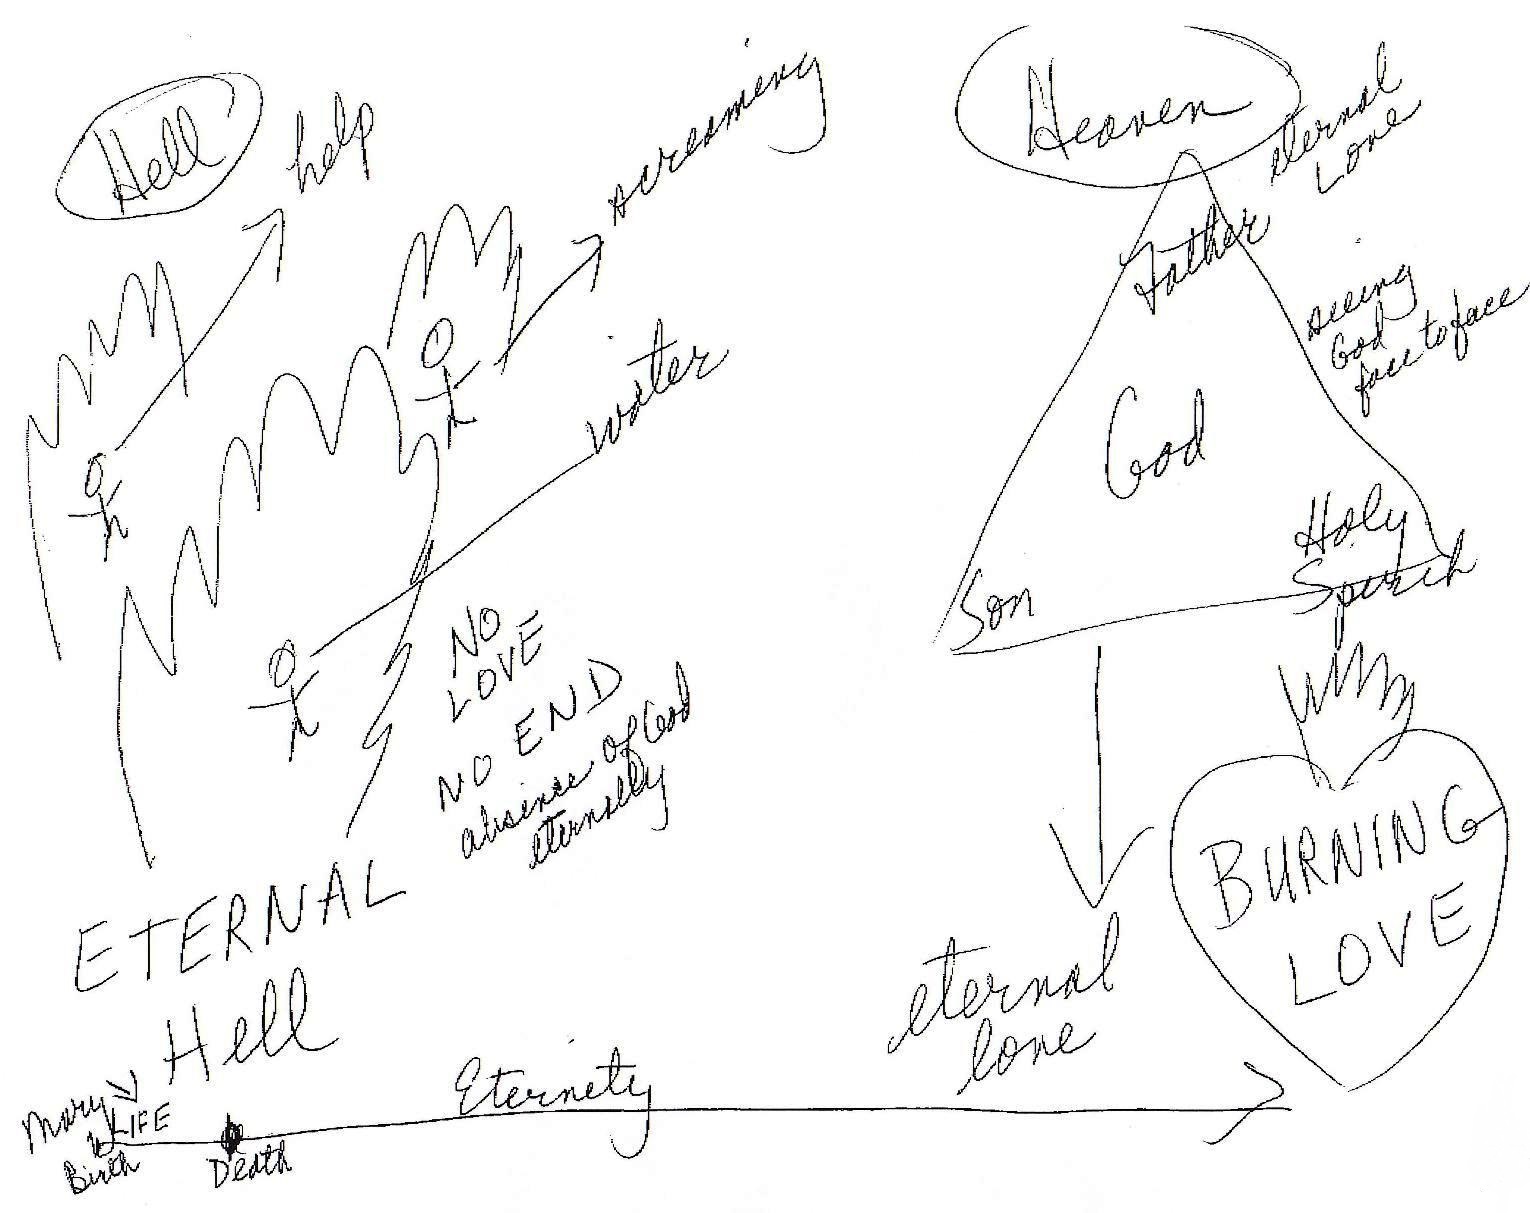 Hell
help
screaming
water
NO
LOVE
NO END
absence of God
eternally
ETERNAL
Hell
Heaven
eternal
Love
Father
seeing
God
face to face
God
Son
Holy
Spirit
eternal
love
BURNING
LOVE
Eternity
Mary
LIFE
Birth
Death